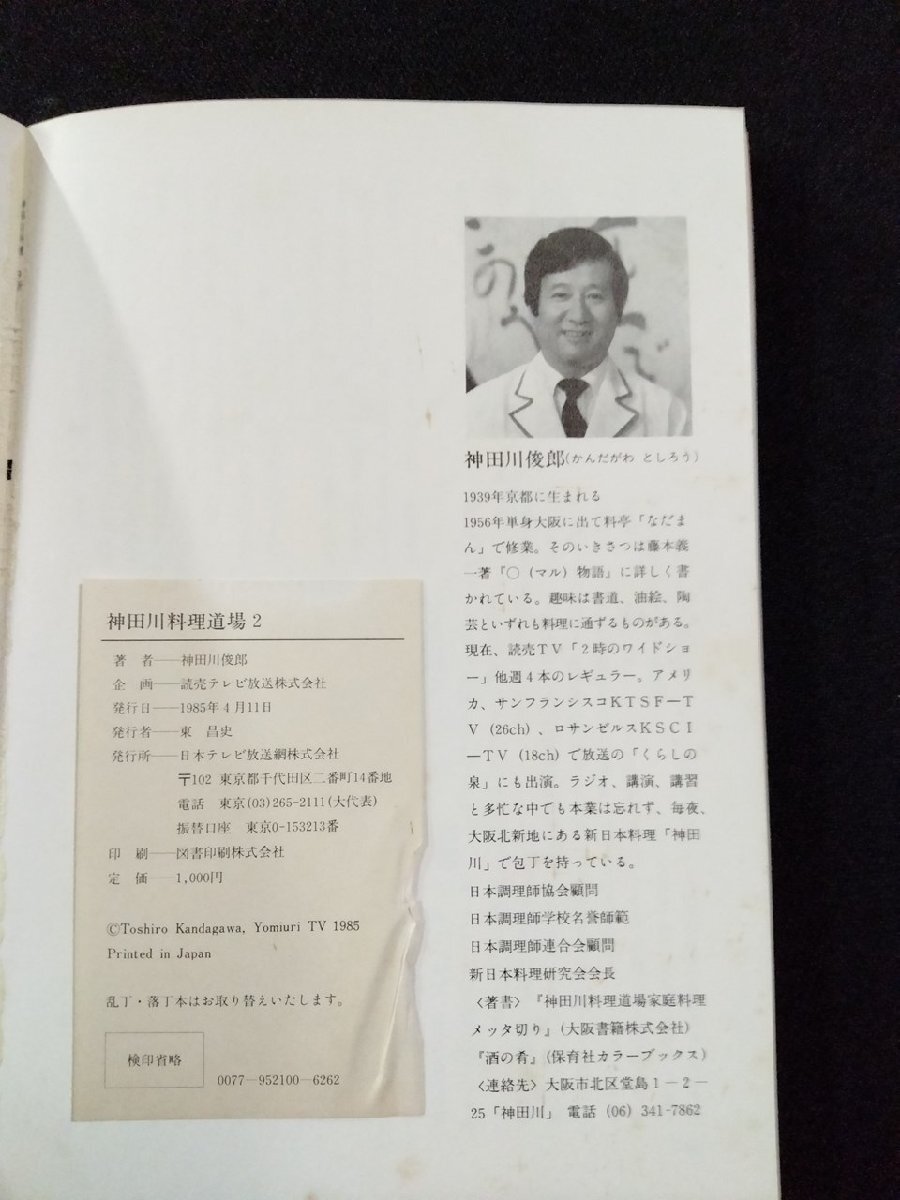 神田川俊郎(かんだがわ としろう)
1939年京都に生まれる
1956年単身大阪に出て料亭「なだま
ん」で修業。そのいきさつは藤本義
一著『○(マル)物語』に詳しく書
かれている。趣味は書道、油絵、陶
芸といずれも料理に通ずるものがある。
現在、読売TV「2時のワイドショ
ー」他週4本のレギュラー。アメリ
カ、サンフランシスコKTSF―T
V(26ch)、ロサンゼルスKSCI
―TV(18ch)で放送の「くらしの
泉」にも出演。ラジオ、講演、講習
と多忙な中でも本業は忘れず、毎夜、
大阪北新地にある新日本料理「神田
川」で包丁を持っている。
日本調理師協会顧問
日本調理師学校名誉師範
日本調理師連合会顧問
新日本料理研究会会長
〈著書〉『神田川料理道場家庭料理
メッタ切り』(大阪書籍株式会社)
『酒の肴』(保育社カラーブックス)
〈連絡先〉大阪市北区堂島1－2－
25「神田川」 電話 (06) 341-7862
神田川料理道場2
著 者──神田川俊郎
企 画──読売テレビ放送株式会社
発行日──1985年4月11日
発行者──東 昌史
発行所──日本テレビ放送網株式会社
〒102 東京都千代田区二番町14番地
電話 東京(03)265-2111(大代表)
振替口座 東京0-153213番
印 刷──図書印刷株式会社
定 価──1,000円
©Toshiro Kandagawa, Yomiuri TV 1985
Printed in Japan
乱丁・落丁本はお取り替えいたします。
検印省略
0077―952100―6262